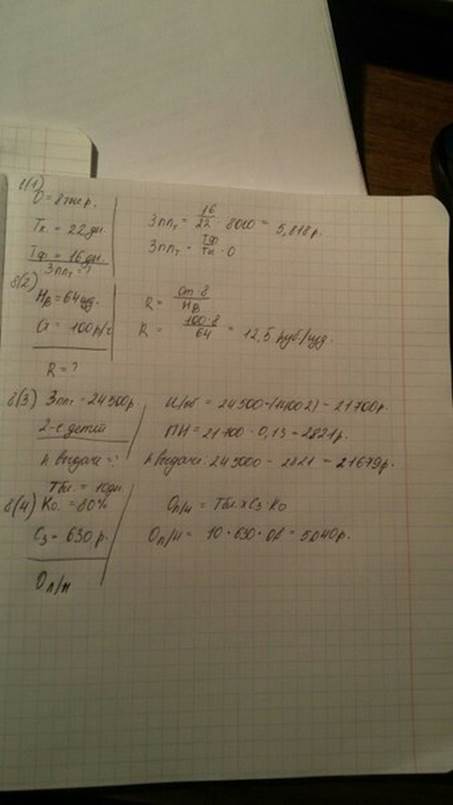 О = 8 тыс р.
Тк = 22 дн.
Тф = 16 дн.
Зппт = ?
Зппт = 16/22 · 8000 = 5,818 р.
Зппт = Тф/Тк · О
б(2)
Нв = 64 изд.
От = 100 р/ч
R = ?
R = От · 8 / Нв
R = 100 · 8 / 64 = 12,5 руб/изд.
б(3) Зппт = 24 500 р.
2-е детей
к выдаче = ?
И/об = 24 500 - (1400·2) = 21 700 р.
ПН = 21 700 · 0,13 = 2821 р.
к выдаче: 245000 - 2821 = 21679 р.
Тбл. = 10 дн.
б(4) Ко. = 80%
Сз = 630 р.
Оп/н
Оп/н = Тбл. х Сз · Ко
Оп/н = 10 · 630 · 0,8 = 5040 р.